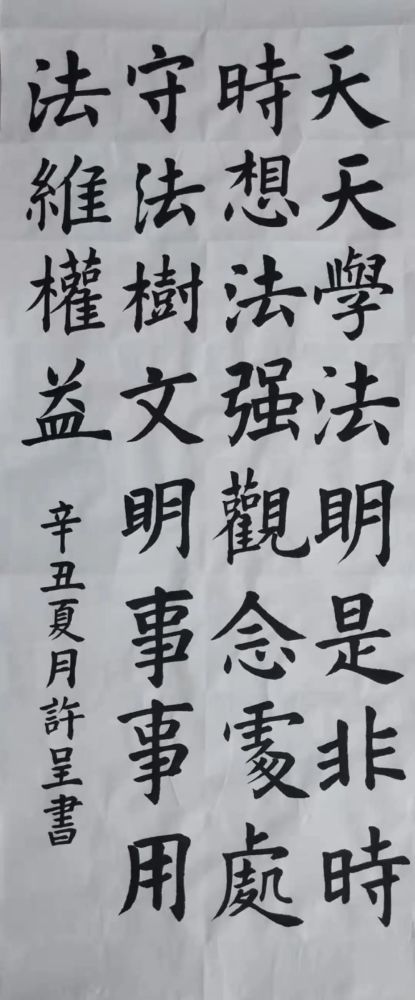 天天學法明是非時
時想法强觀念處處
守法樹文明事事用
法維權益
辛丑夏月許呈書